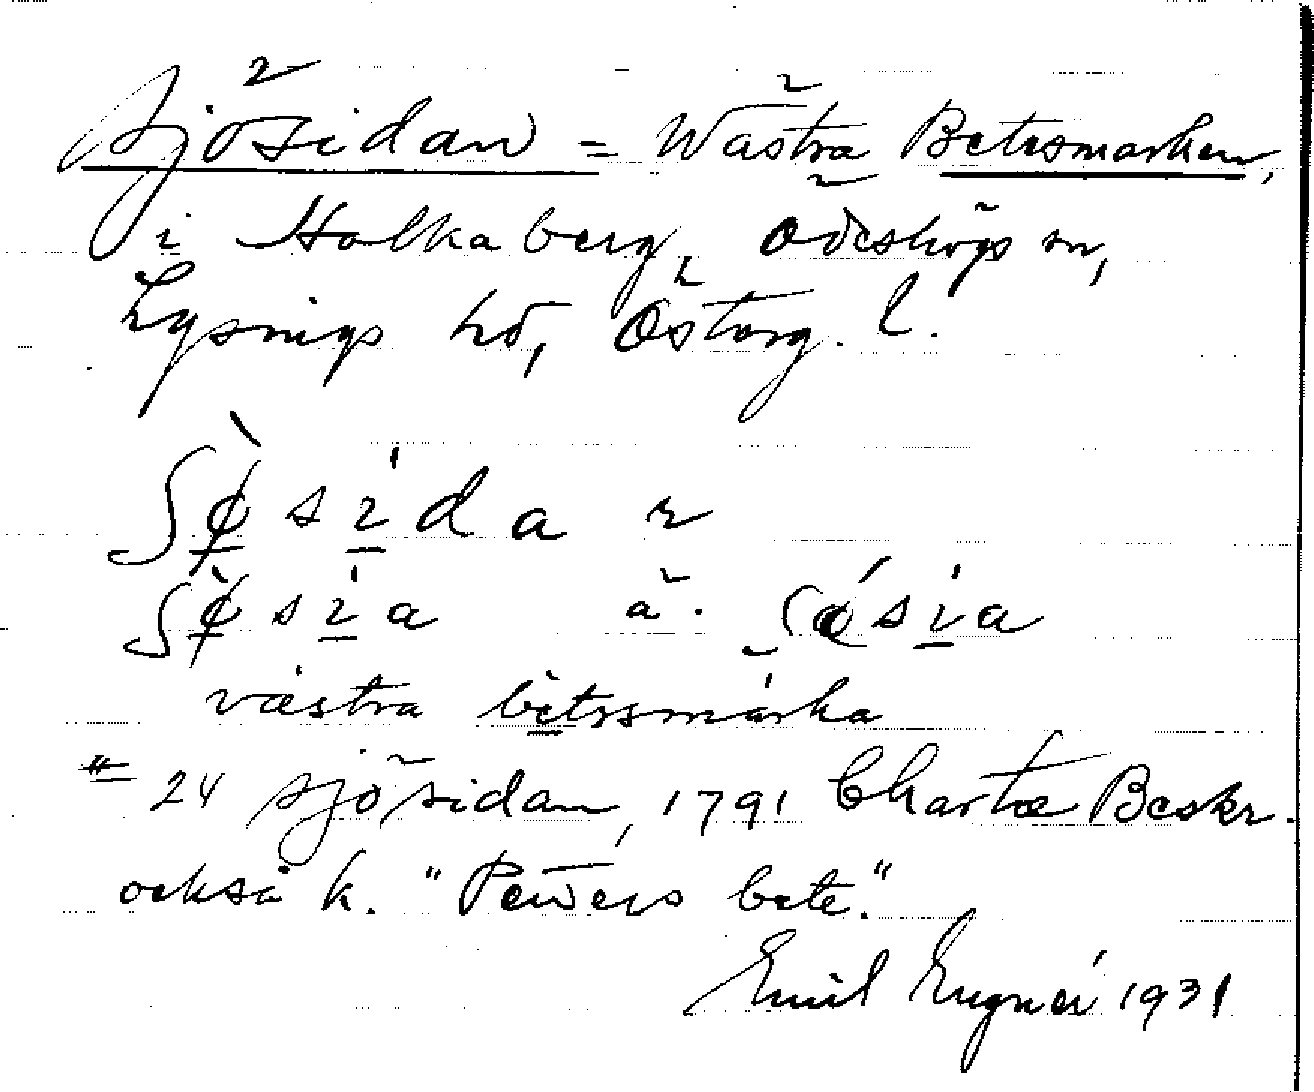 Sjösidan = Wästra Betesmarken,
i Holkaberg, Ödeshögs sn,
Lysings hd, Östorg. l.
ʃø̀sída r
ʃø̀sía ä. ʃǿsía
västra bètesmárka
# 24 Sjösidan, 1791 Charta Beskr.
också k. "Peters bete."
Emil Eugnér 1931